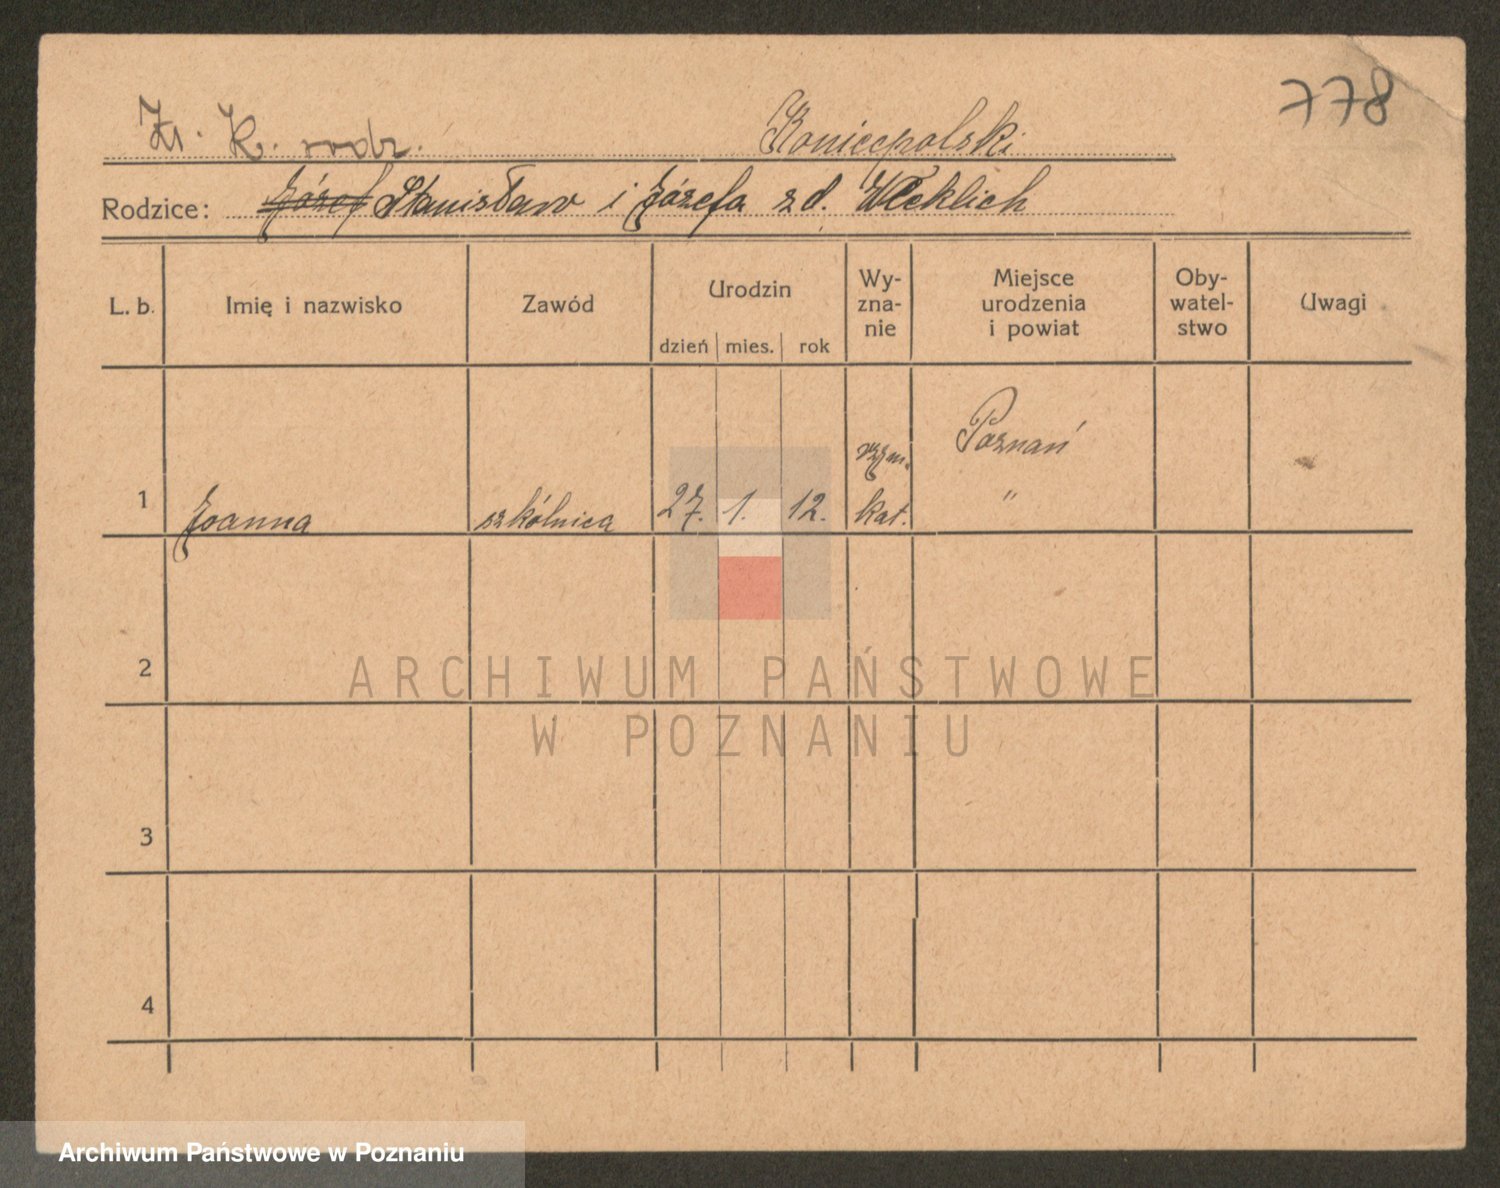 778
K. rodz. Koniecpolski
Rodzice: Józef Stanisław i Józefa z d. Weklich
L. b. Imię i nazwisko Zawód Urodzin dzień mies. rok Wy-zna-nie Miejsce urodzenia i powiat Oby-watel-stwo Uwagi
Poznań
rzym.
1 Joanna szkólnica 27. 1. 12. kat. "
2
ARCHIWUM PAŃSTWOWE
W POZNANIU
3
4
Archiwum Państwowe w Poznaniu